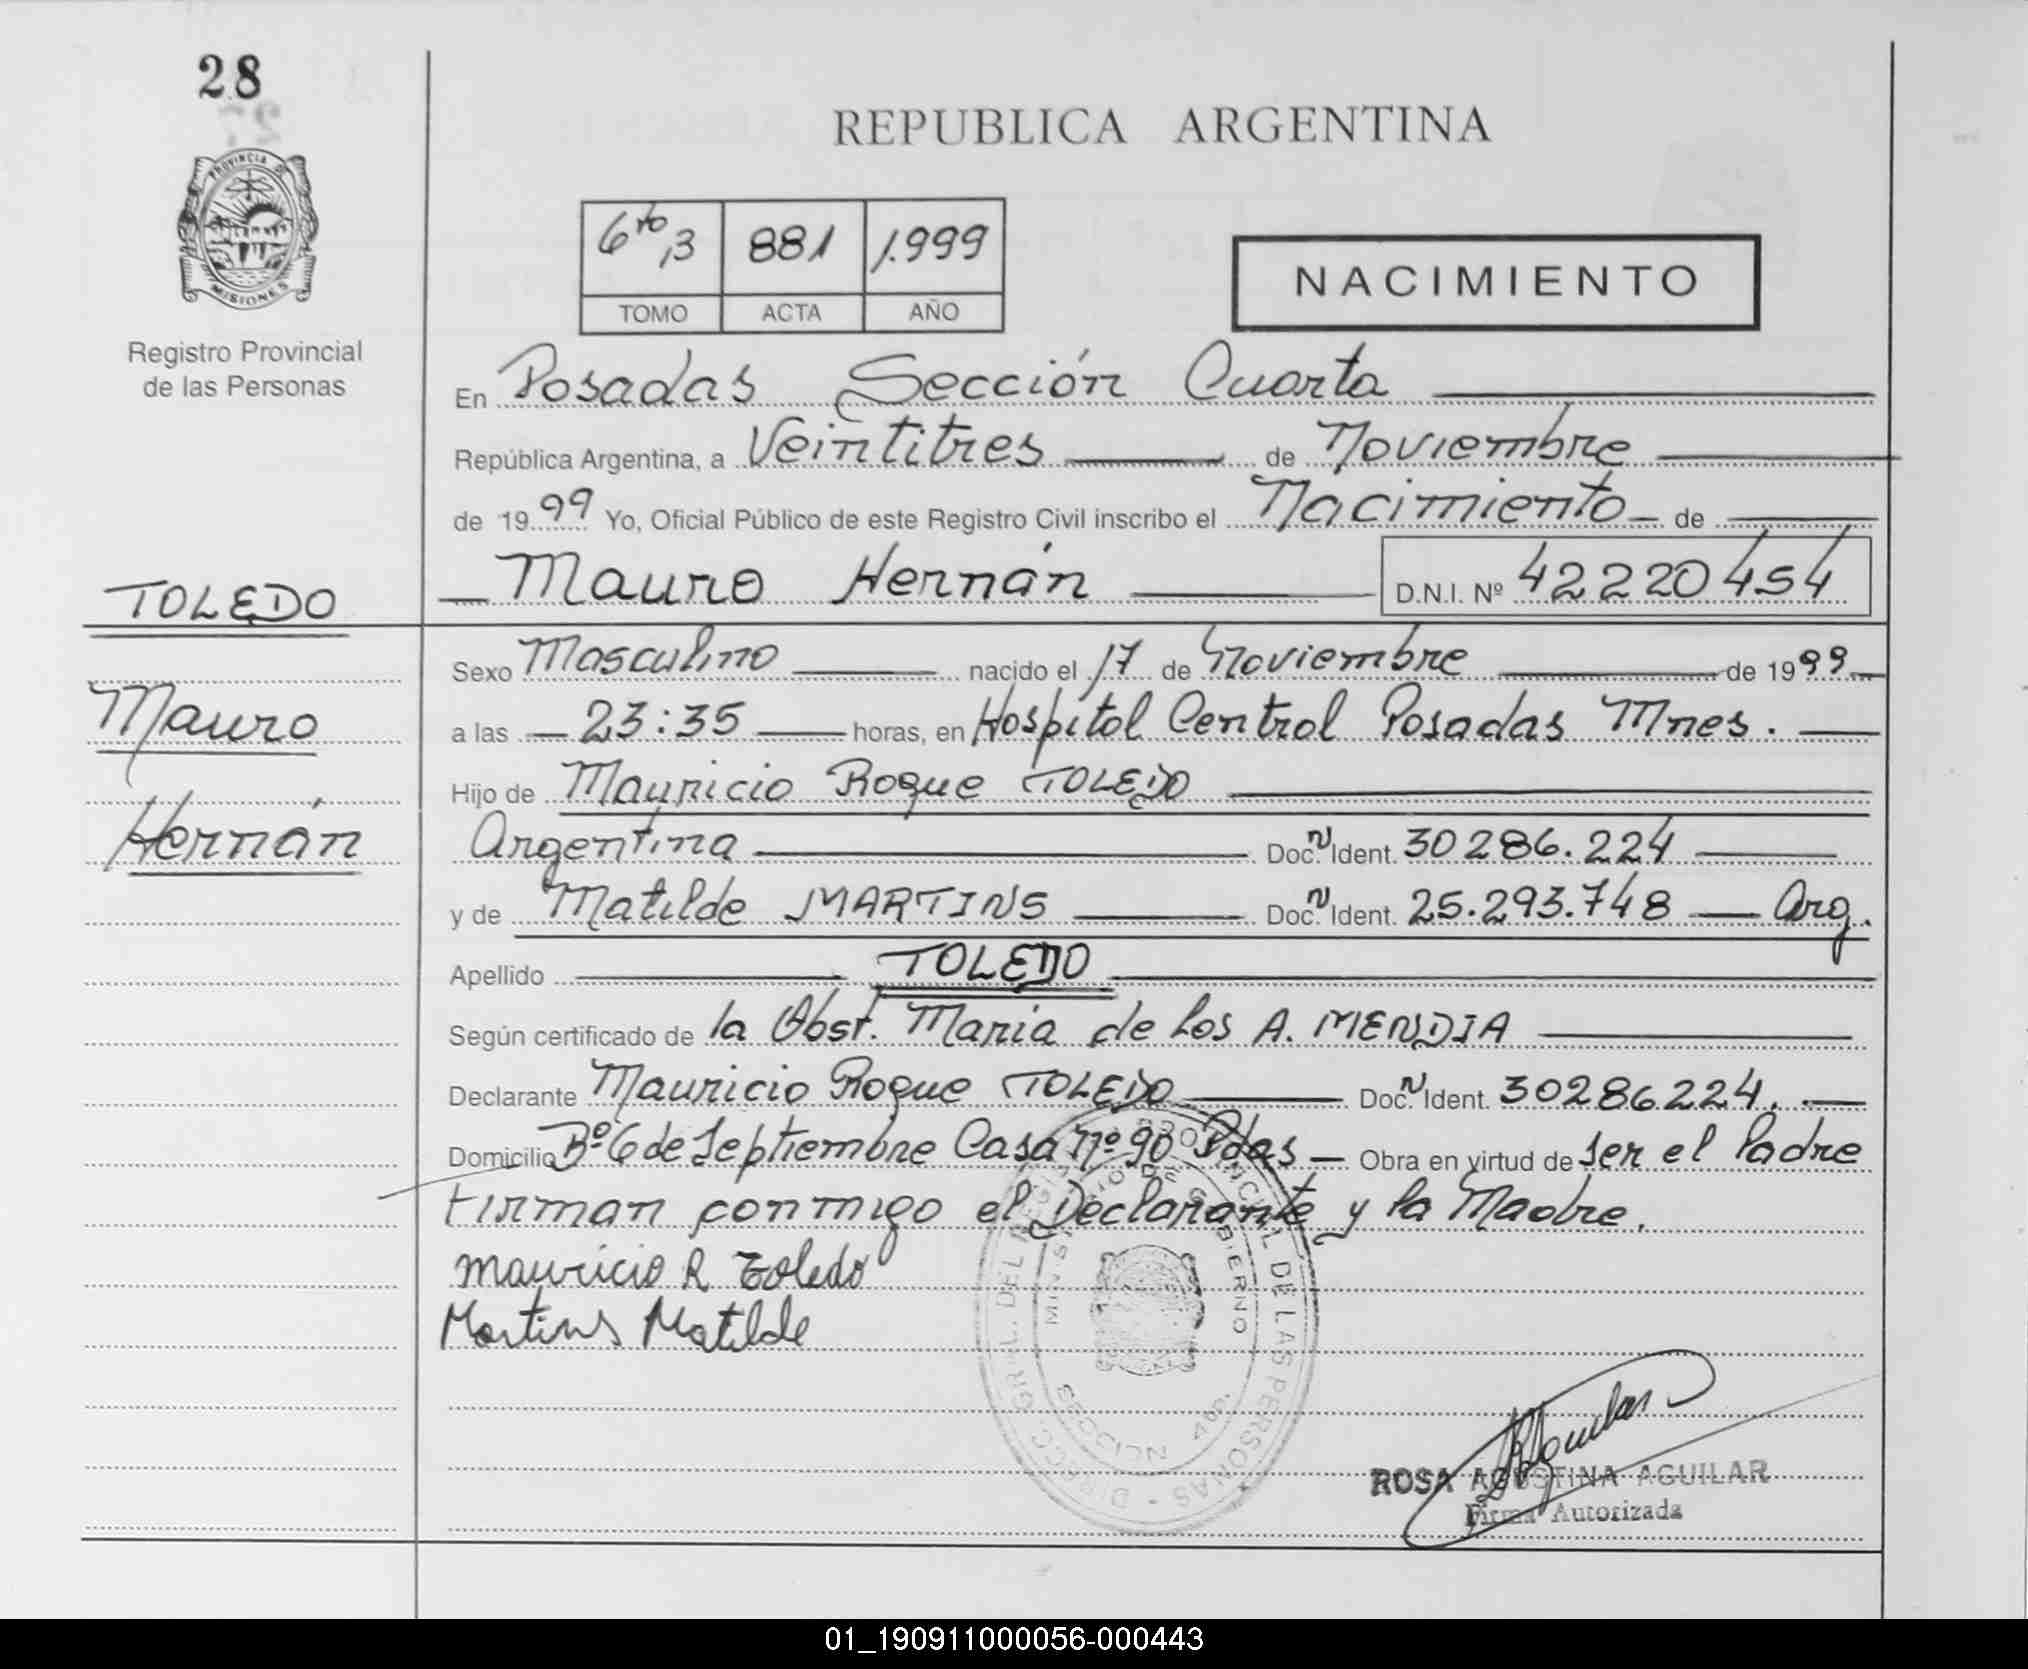 28
REPUBLICA ARGENTINA
PROVINCIA DE
MISIONES
Registro Provincial
de las Personas
6to 3 881 1.999
TOMO ACTA AÑO
NACIMIENTO
En Posadas Sección Cuarta
República Argentina, a Veintitres de Noviembre
de 1999 Yo, Oficial Público de este Registro Civil inscribo el Nacimiento de
Mauro Hernán D.N.I. Nº 42220454
TOLEDO
Mauro
Hernán
Sexo Masculino nacido el 17 de Noviembre de 1999
a las 23:35 horas, en Hospital Central Posadas Mnes.
Hijo de Mauricio Roque TOLEDO
Argentina Doc. N Ident. 30286.224
y de Matilde MARTINS Doc. N Ident. 25.293.748 Arg.
Apellido TOLEDO
Según certificado de la Obst. Maria de Los A. MENDIA
Declarante Mauricio Roque TOLEDO Doc. N Ident. 30286224.
Domicilio Bº 6 de Septiembre Casa Nº 90 Pdas Obra en virtud de ser el Padre
Firman conmigo el Declarante y la Madre.
Mauricio R Toledo
Martins Matilde
DIRECC. GRAL. DEL REGISTRO PROVINCIAL DE LAS PERSONAS
MINISTERIO DE GOBIERNO
ROSA AGUSTINA AGUILAR
Firma Autorizada
01_190911000056-000443